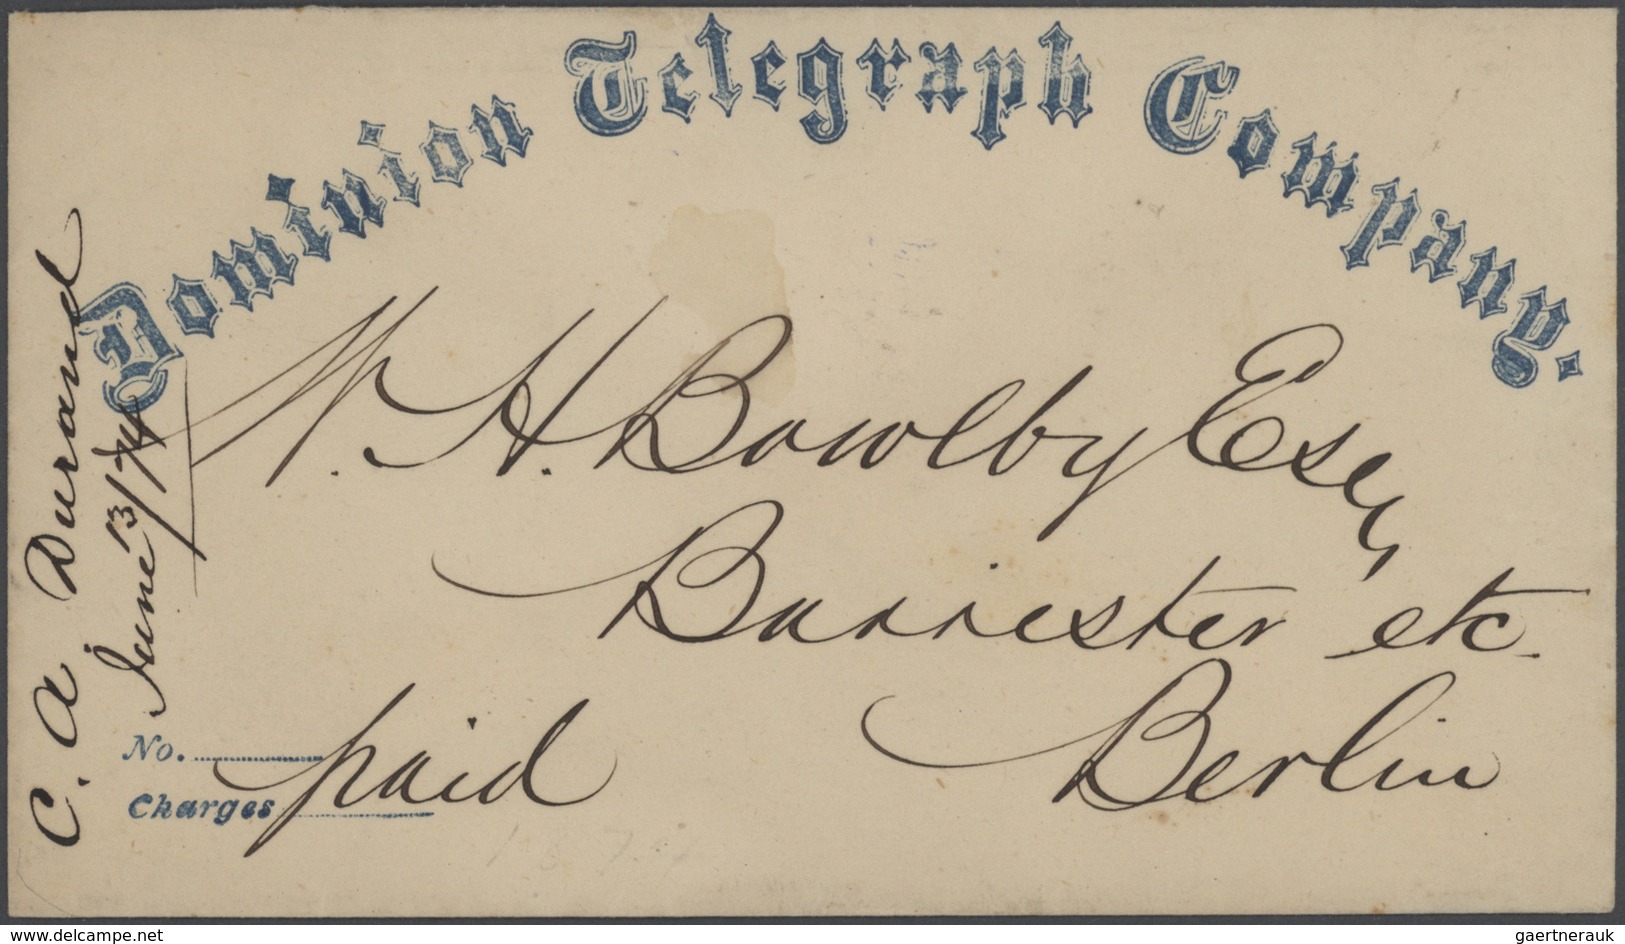 Dominion Telegraph Company.
C. A Durand
June 13/74
W. H. Bowlby Esq
Barrister etc.
Berlin
No.
Charges paid
www.delcampe.net
gaertnerauk